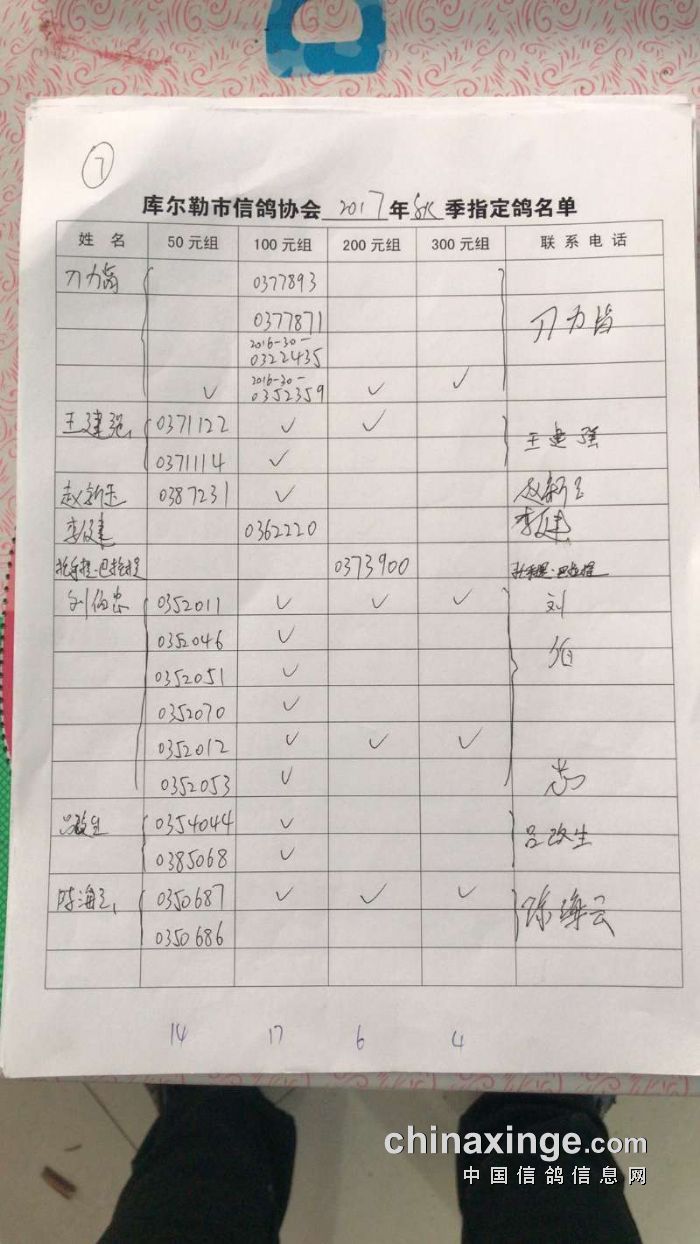 7
库尔勒市信鸽协会 2017 年 秋 季指定鸽名单
姓 名 50元组 100元组 200元组 300元组 联系电话
刀力 0377893 刀力
0377871
2016-30-
0322435
2016-30-
✓ 0352359 ✓ ✓
王建强 0371122 ✓ ✓ 王建强
0371114 ✓
赵新玉 0387231 ✓ 赵新玉
李健 0362220 李健
0373900
刘伯忠 0352011 ✓ ✓ ✓ 刘
0352046 ✓ 伯
0352051 ✓
0352070 ✓
0352012 ✓ ✓ ✓
0352053 ✓ 忠
吕改生 0354044 ✓ 吕改生
0385068 ✓
陈海云 0350687 ✓ ✓ ✓ 陈海云
0350686
14 17 6 4
chinaxinge.com
中国信鸽信息网